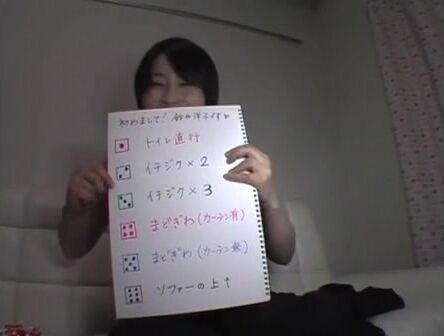 初めまして! 鈴木洋子です
トイレ直行
イチジク×2
イチジク×3
まどぎわ(カーテン有)
まどぎわ(カーテン無)
ソファーの上↑